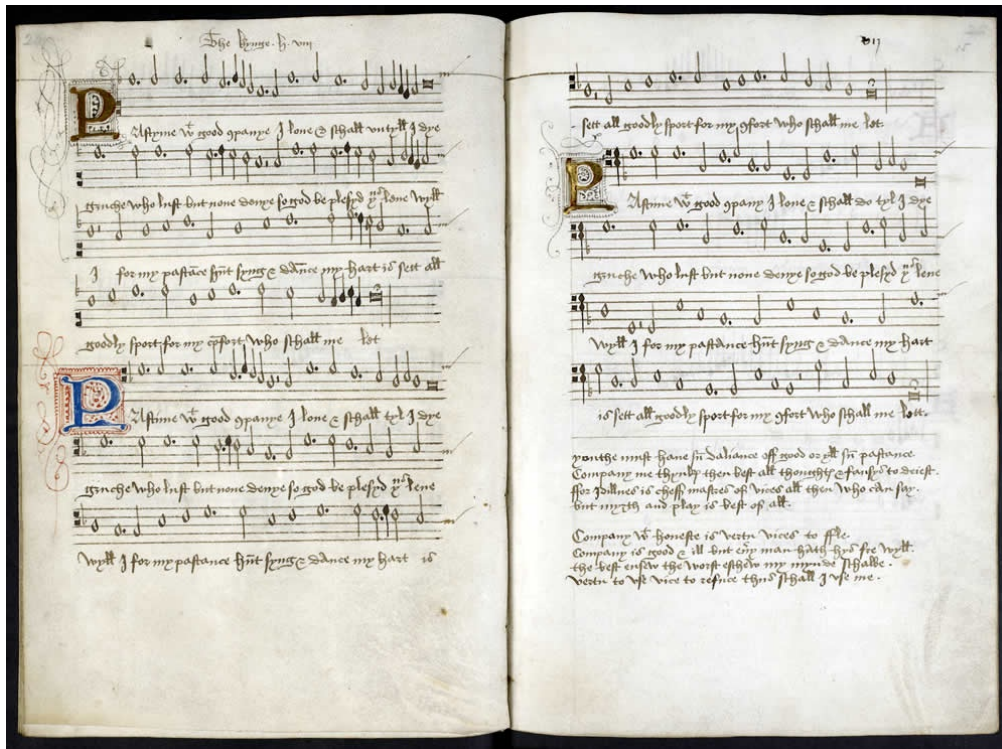 The kynge .h. viii
Pastyme wt good companye I love & schall untyll I dye
gruche who lust but none denye so god be plesyd þus leve wyll
I for my pastace hunt syng & dance my hart is sett all
goodly sport for my cofort who schall me let
Pastime wt good companye I love & schall tyl I dye
gruche who lust but none denye so god be plesyd þus leve
wyll I for my pastance hunt syng & dance my hart is
vij
sett all goodly sport for my cofort who schall me let
Pastime wt good companye I love & schall do tyl I dye
gruche who lust but none denye so god be plesyd þus leve
wyll I for my pastance hunt syng & dance my hart
is sett all goodly sport for my cofort who schall me lett.
youthe must have su daliance off good or yll su pastance
Company me thynks then best all thoughts & fansys to deiest.
ffor Idillnes is cheff mastres of vices all then who can say.
but myrth and play is best of all.
Company wt honeste is vertu vices to ffle.
Company is good & ill but evy man hath hys fre wyll.
the best ensew the worst eschew my mynde schalbe.
vertu to use vice to refuce thus schall I use me.